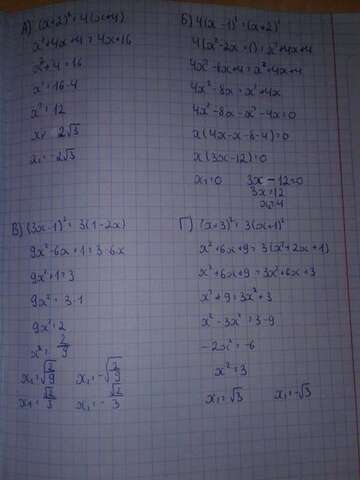 А) (x+2)² = 4(x+4)
x²+4x+4 = 4x+16
x²+4 = 16
x² = 16-4
x² = 12
x₁ = 2√3
x₂ = -2√3
Б) 4(x-1)² = (x+2)²
4(x²-2x+1) = x²+4x+4
4x²-8x+4 = x²+4x+4
4x²-8x = x²+4x
4x²-8x-x²-4x=0
x(4x-x-8-4)=0
x(3x-12)=0
x₁=0 3x-12=0
3x=12
x₂=4
В) (3x-1)² = 3(1-2x)
9x²-6x+1 = 3-6x
9x²+1 = 3
9x² = 3-1
9x² = 2
x² = 2/9
x₁ = √2/9 x₂ = -√2/9
x₁ = √2/3 x₂ = -√2/3
Г) (x+3)² = 3(x+1)²
x²+6x+9 = 3(x²+2x+1)
x²+6x+9 = 3x²+6x+3
x²+9 = 3x²+3
x²-3x² = 3-9
-2x² = -6
x² = 3
x₁ = √3 x₂ = -√3